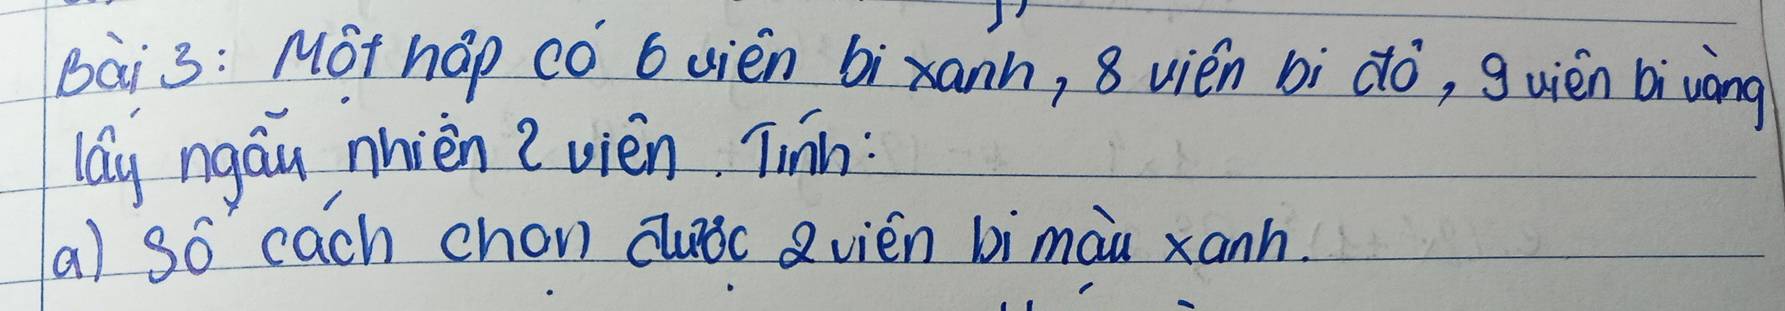 Bài 3: Một hộp có 6 viên bi xanh, 8 viên bi đỏ, 9 viên bi vàng
lấy ngẫu nhiên 2 viên. Tính:
a) Số cách chọn được 2 viên bi màu xanh.